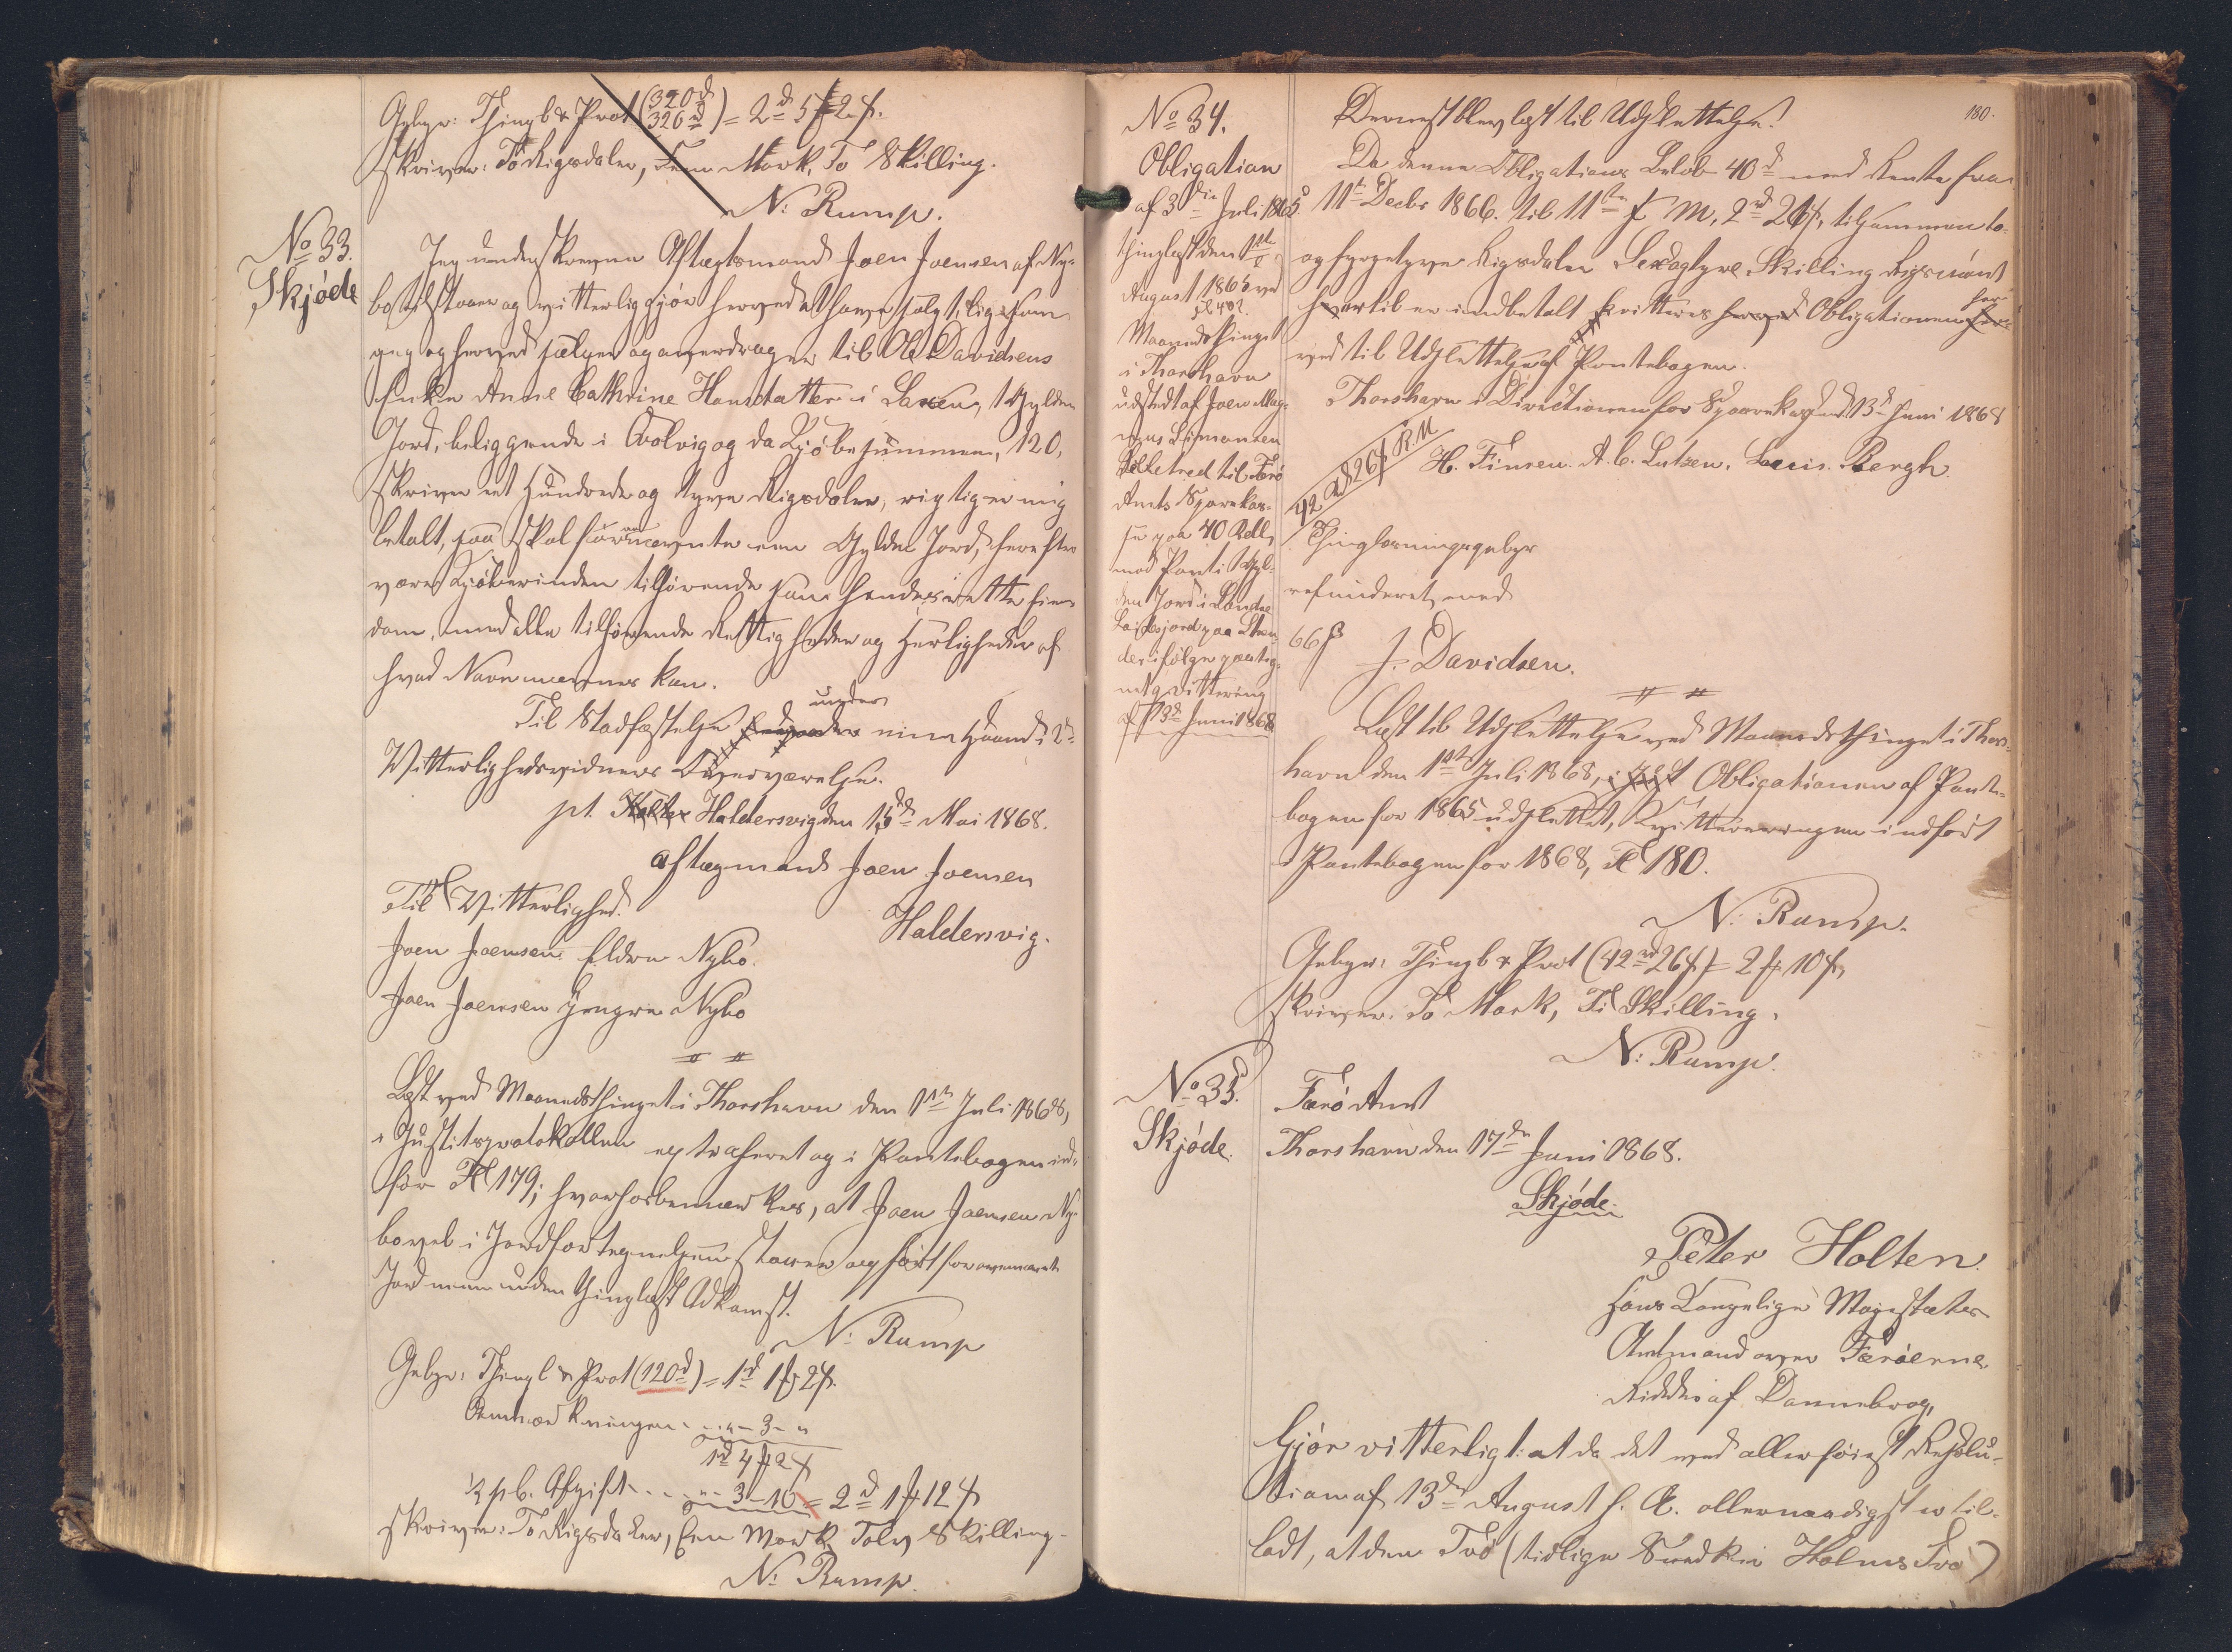 Gebyr: Thingl & Prot (320d 326d) = 2d 5 2ß.
skriver: To Rigsdaler, Fem Mark, To Skilling.
N: Rump.
No 33.
Skjöde
Jeg underskrevne Aftægtsmand Joen Joensen af Ny-
bo tilstaaer og vitterliggjör herved at have solgt, ligesom
jeg og herved sælger og overdrager til Ole Davidsens
Enke Anne Cathrine Hansdatter i 1 Gylden
Jord, beliggende i og da Kjöbesummen, 120,
skriver eet Hundrede og tyve Rigsdaler, rigtig er mig
betalt, saa skal fornævnte een Gylden Jord, herefter
være Kjöberinden tilhörende som hendes rette Eien-
dom, med alle tilhörende Rettigheder og Herligheder af
hvad Navn nævnes kan.
Til Stadfæstelse under min Haand i 2de
Vitterlighedsvidners Overværelse.
pt. Haldersvig den 15de Mai 1868.
aftægmand Joen Joensen
Haldersvig.
Til Vitterlighed.
Joen Joensen Eldre Nybo.
Joen Joensen yngre Nybo
Læst ved Maanedsthinget i Thorshavn den 1ste Juli 1868,
i Justitsprotokollen extraheret og i Pantebogen ind-
för Fol 179; hvorhos bemærkes, at Joen Joensen Ny-
bo vel i Jordfortegnelsen staaer opfört for ommeldte
Jord men uden thinglæst Adkomst.
N: Rump
Gebyr: Thingl & Prot (120d) = 1d 1 2ß.
Anmærkningen - - " - 3 - "
1d 4 2ß
½ pC. Afgift - - - " - 3 - 10 = 2d 1 12ß
skriver: To Rigsdaler, Een Mark, Tolv Skilling -
N: Rump.
180.
No 34.
Obligation
af 3die Juli 1865
thinglæst den 1ste
August 1865 ved
Maanedsthinget
i Thorshavn
udstedt af Joen Mag-
nus Simonsen
til Færö
Amts Sparekas-
se paa 40 Rdl,
mod Pant i 1 Gyl-
den Jord i
paa
ifölge paateg-
net Qvittering
af 13de Juni 1868
Dernæst blev læst til Udslettelse:
Da denne Obligations Belöb 40d med Rente fra
11te Decbr 1866. til 11te f M, 2rd 26ß, tilsammen to-
og fyrgetyve Rigsdaler Sexogtyve Skilling Rigsmönt
hertil er indbetalt qvitteres Obligationen her-
ved til Udslettelse af Pantebogen.
Thorshavn i Directionen for Sparekassen d. 13de Juni 1868
42 rd 26ß R.M
H. Finsen. A. C. Lutzen. Louis Bergh.
Thinglæsningsgebyr
refunderet med
66ß
J. Davidsen.
Læst til Udslettelse ved Maanedsthinget i Thors-
havn den 1ste Juli 1868, Obligationen af Pante-
bogen for 1865 udslettet, Qvitteringen indfört
i Pantebogen for 1868, Fol 180.
N: Rump.
Gebyr: Thingl & Prot (42rd 26ß) = 2 10ß,
skriver: To Mark, Ti Skilling.
N: Rump.
No 35.
Skjöde.
Færö Amt
Thorshavn den 17de Juni 1868.
Skjöde.
Peter Holten.
Hans Kongelige Majestæts
Amtmand over Færöerne.
Ridder af Dannebrog,
Gjör vitterligt: at da det ved allerhöiest Resolu-
tion af 13de August f. A. allernaadigst er til-
ladt, at den (tidligere